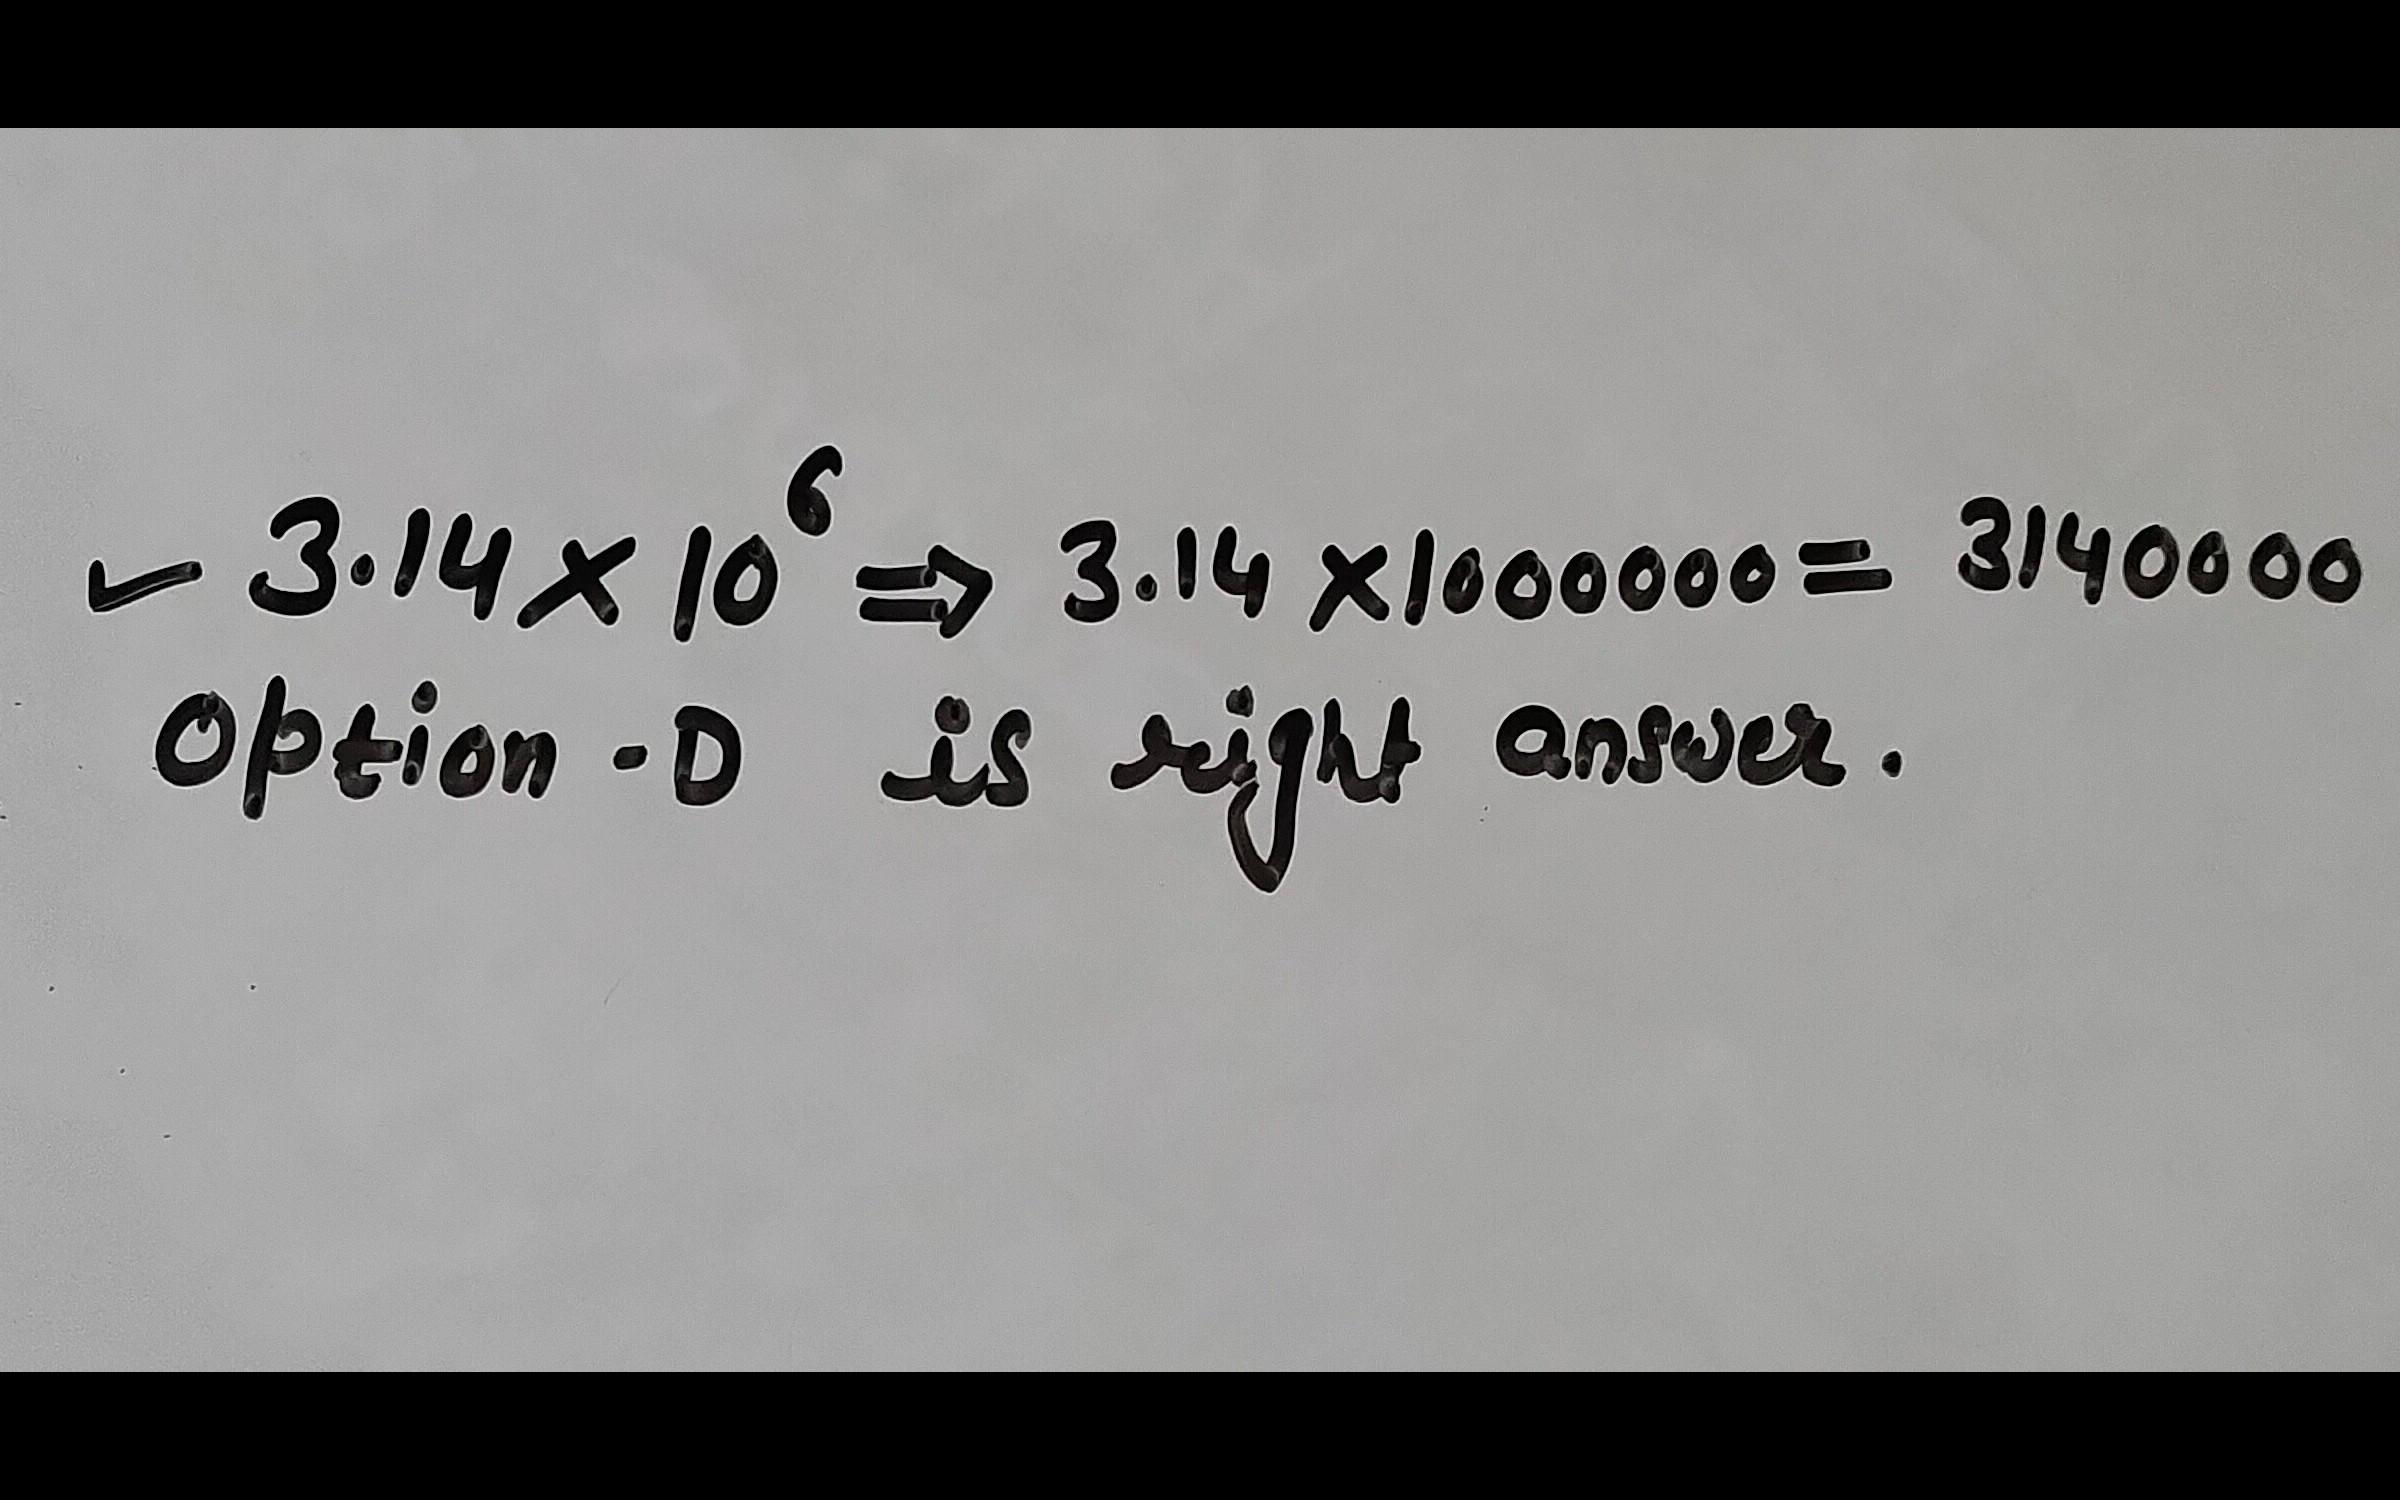 ✓ 3.14 × 10⁶ ⇒ 3.14 × 1000000 = 3140000
Option - D is right answer.